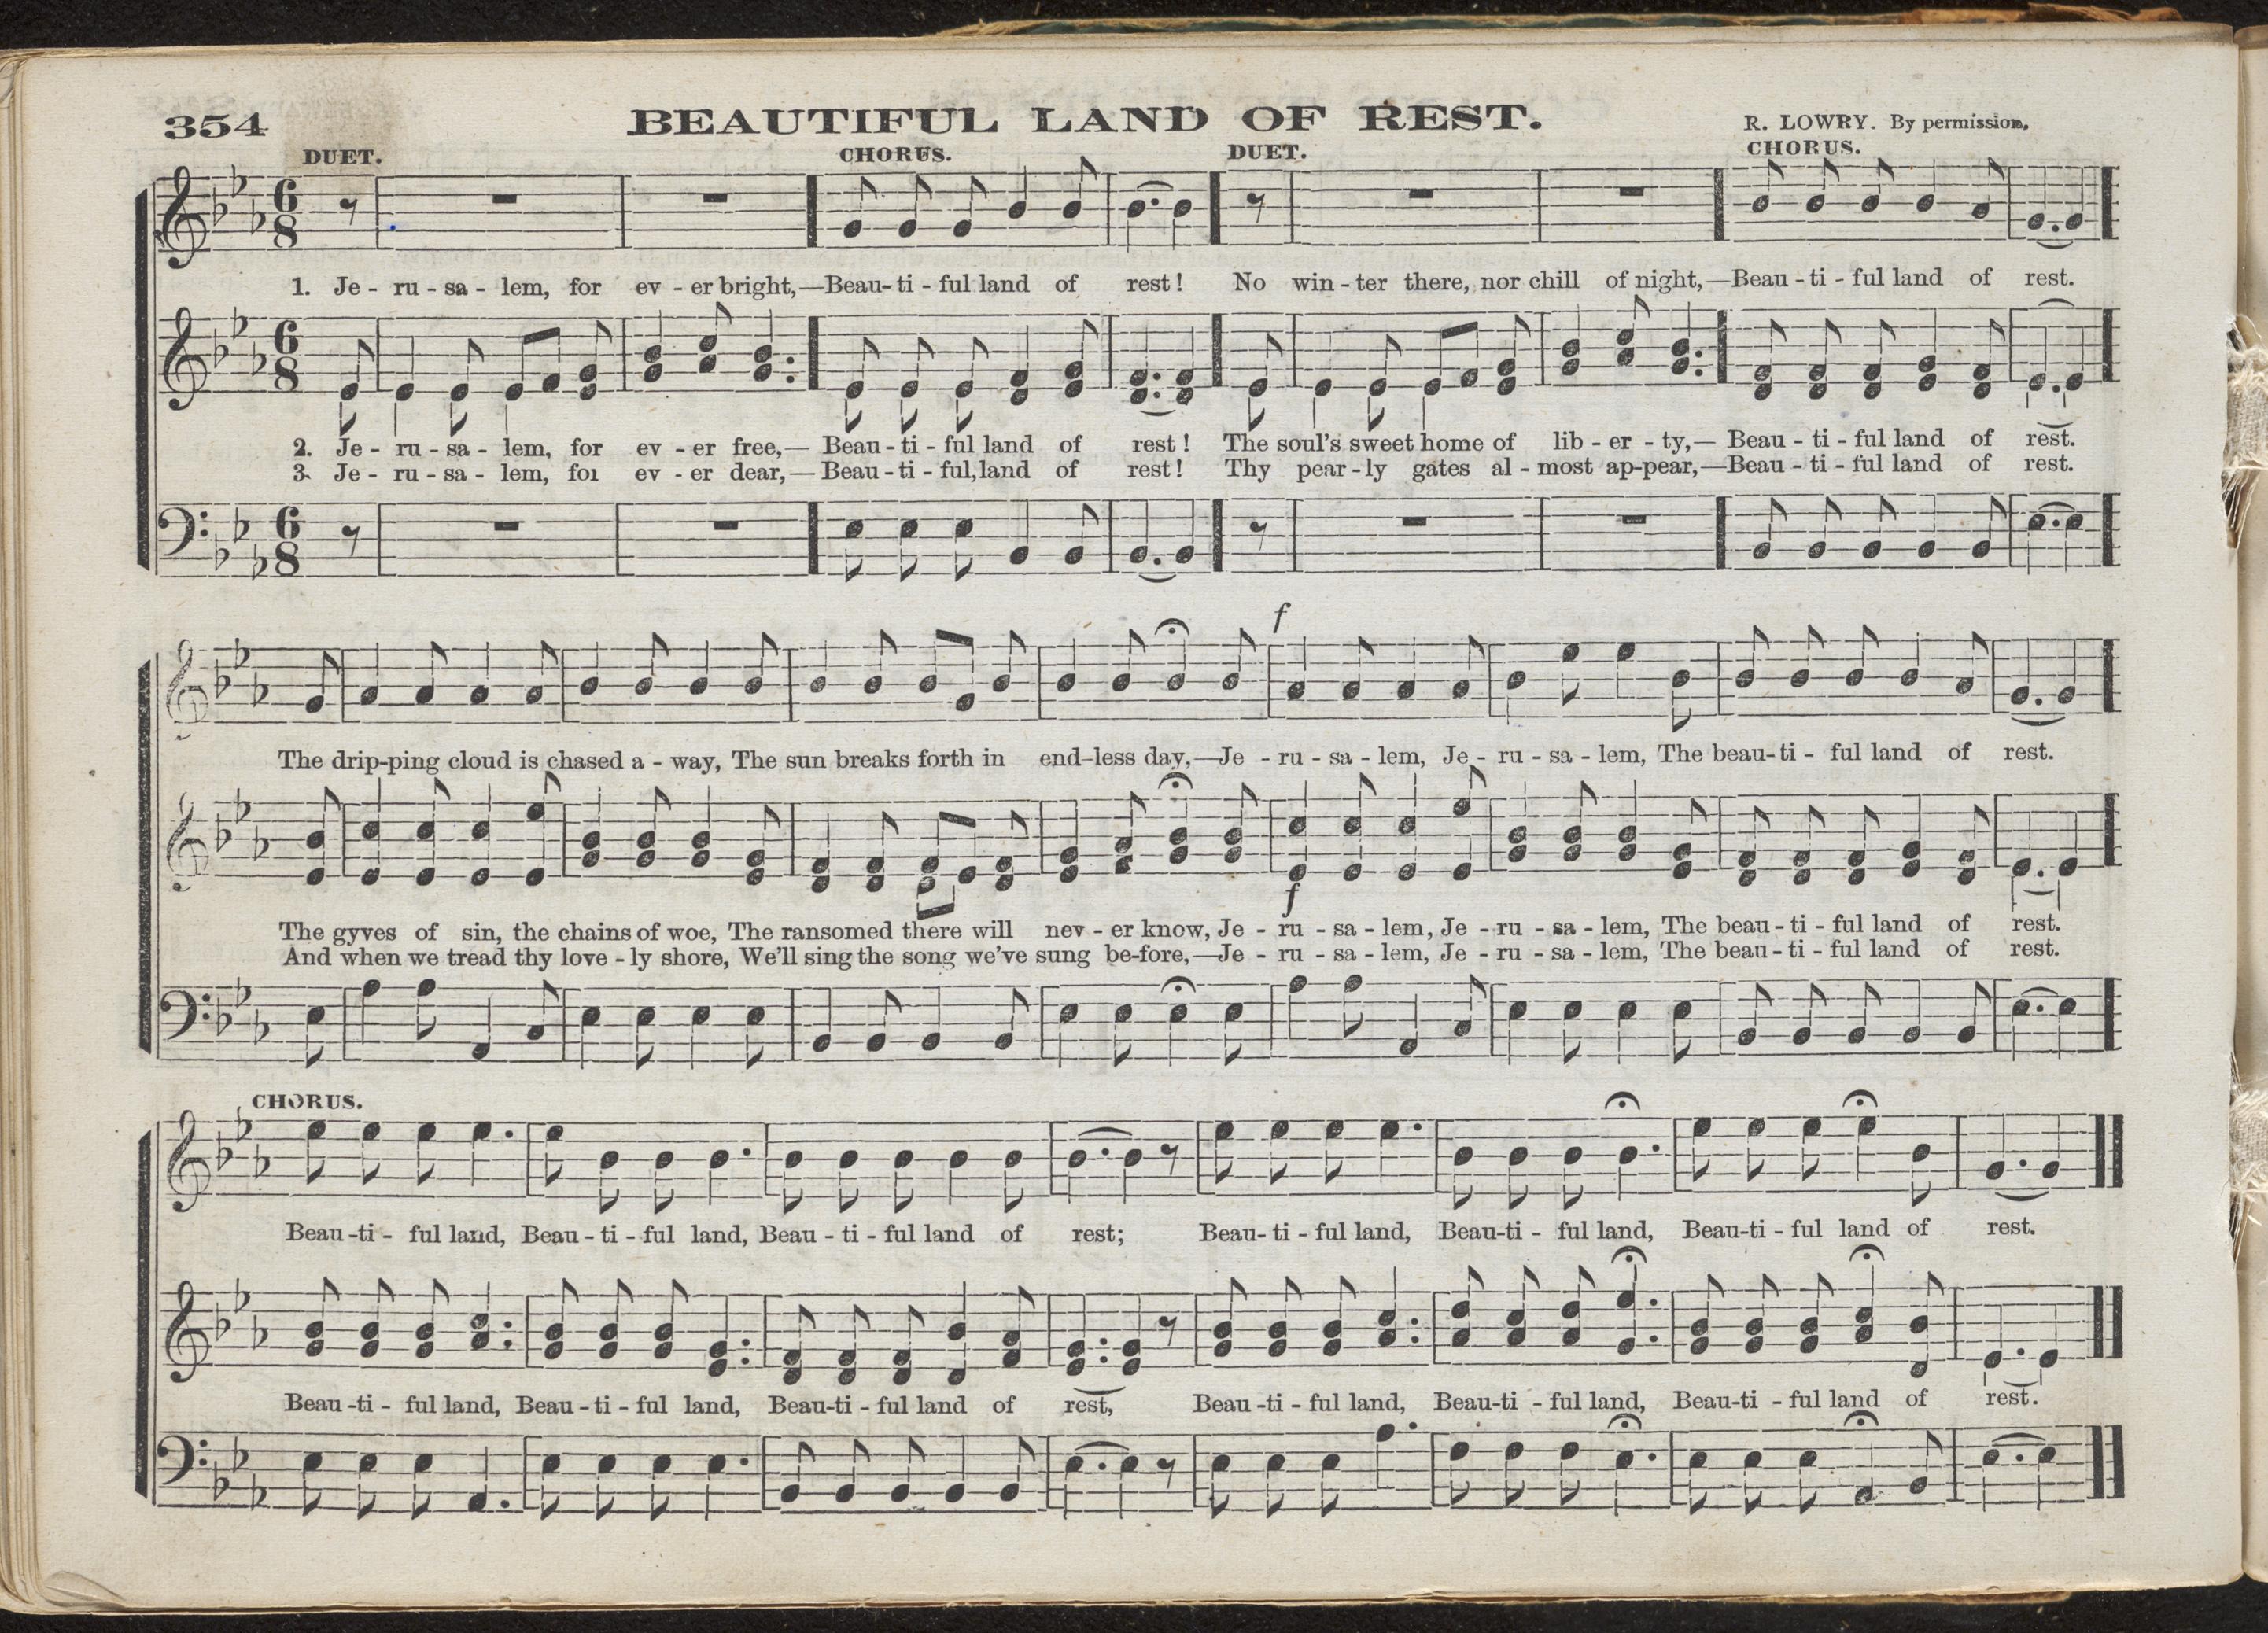 354
BEAUTIFUL LAND OF REST.
R. LOWRY. By permission.
DUET. CHORUS. DUET. CHORUS.
6 8
1. Je - ru - sa - lem, for ev - er bright,—Beau - ti - ful land of rest! No win - ter there, nor chill of night,—Beau - ti - ful land of rest.
6 8
2. Je - ru - sa - lem, for ev - er free,— Beau - ti - ful land of rest! The soul's sweet home of lib - er - ty,— Beau - ti - ful land of rest.
3. Je - ru - sa - lem, for ev - er dear,— Beau - ti - ful, land of rest! Thy pear - ly gates al - most ap-pear,—Beau - ti - ful land of rest.
6 8
f
The drip-ping cloud is chased a - way, The sun breaks forth in end-less day,—Je - ru - sa - lem, Je - ru - sa - lem, The beau-ti - ful land of rest.
f
The gyves of sin, the chains of woe, The ransomed there will nev - er know, Je - ru - sa - lem, Je - ru - sa - lem, The beau - ti - ful land of rest.
And when we tread thy love - ly shore, We'll sing the song we've sung be-fore,—Je - ru - sa - lem, Je - ru - sa - lem, The beau - ti - ful land of rest.
CHORUS.
Beau -ti - ful land, Beau - ti - ful land, Beau - ti - ful land of rest; Beau- ti - ful land, Beau-ti - ful land, Beau-ti - ful land of rest.
Beau -ti - ful land, Beau - ti - ful land, Beau-ti - ful land of rest, Beau -ti - ful land, Beau-ti - ful land, Beau-ti - ful land of rest.